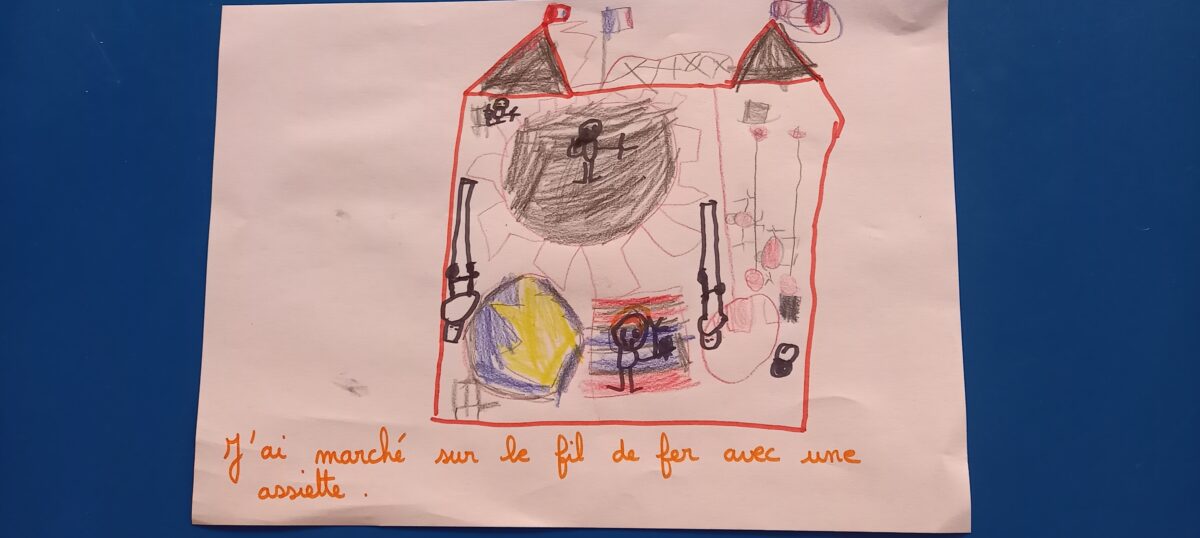 J'ai marché sur le fil de fer avec une
assiette.